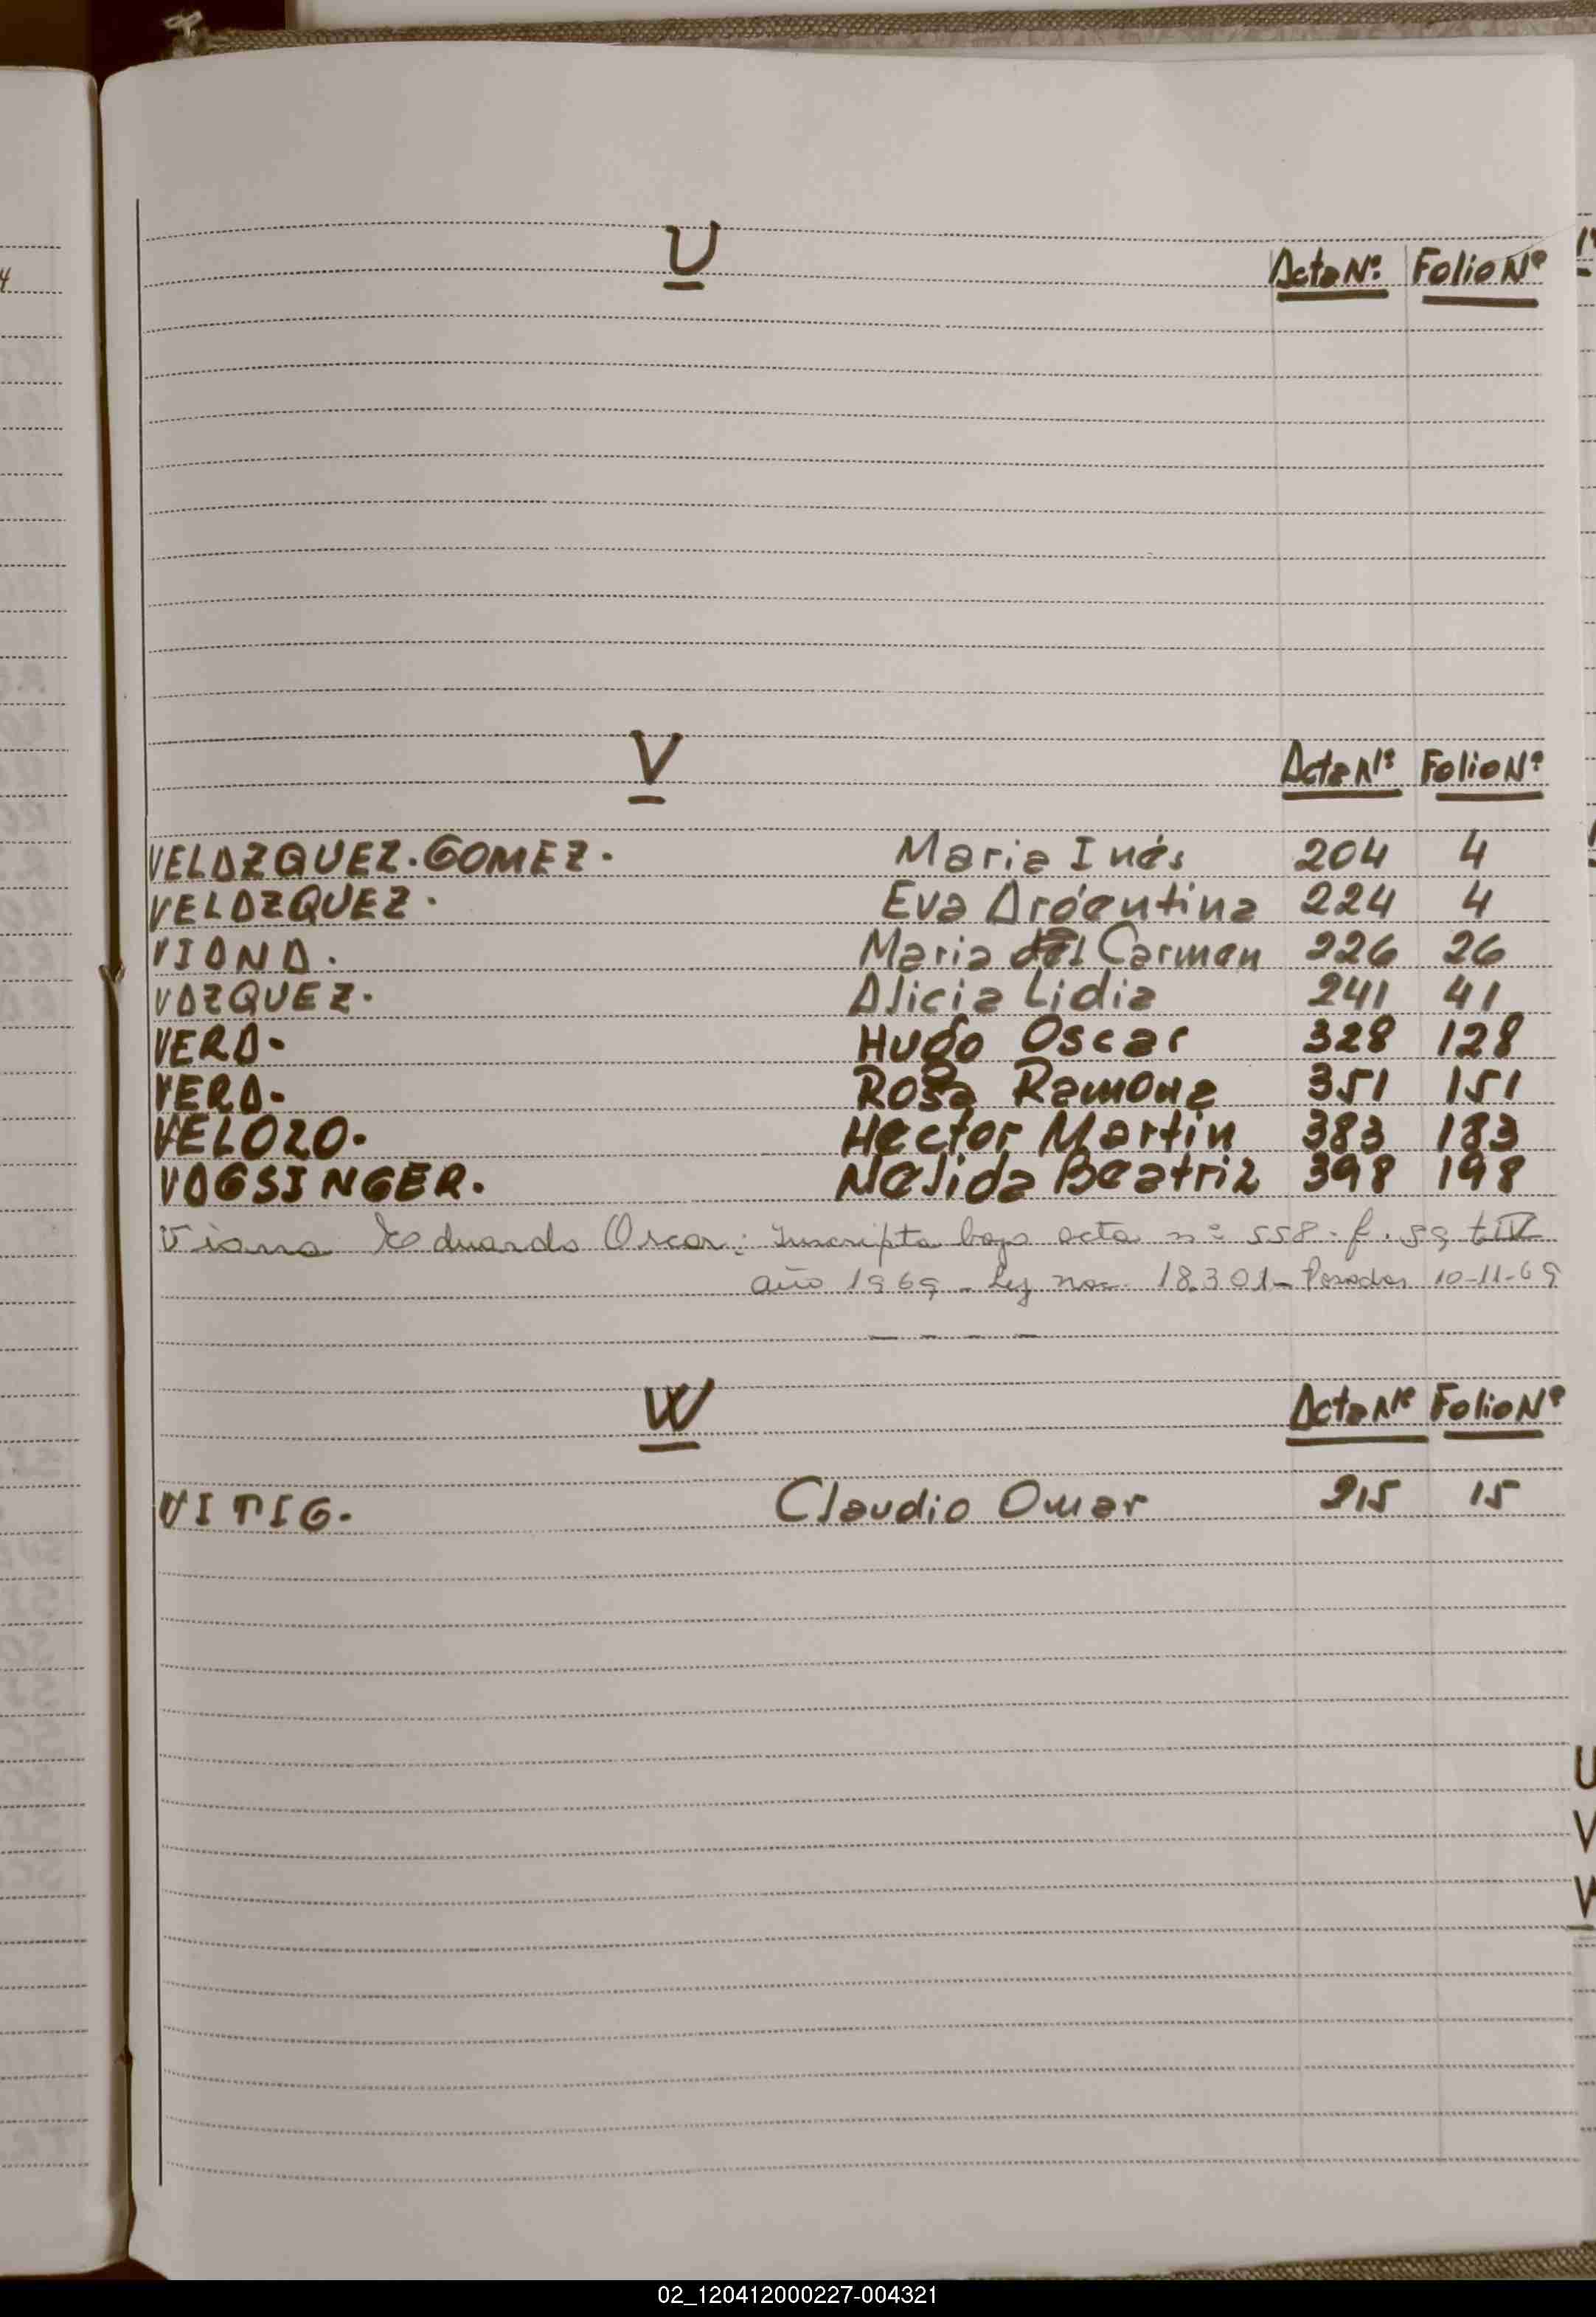 U
Acta Nº. Folio Nº
V
Acta Nº Folio Nº
VELAZQUEZ.GOMEZ. Maria Inés 204 4
VELAZQUEZ. Eva Argentina 224 4
VIANA. Maria del Carmen 226 26
VAZQUEZ. Alicia Lidia 241 41
VERA. Hugo Oscar 328 128
VERA. Rosa Ramona 351 151
VELOZO. Hector Martin 383 183
VOGSINGER. Nelida Beatriz 398 198
Viana Eduardo Oscar: Inscripta bajo acta nº 558. f. 59 t IV
año 1969 - Ley nac. 18.301 - Posadas 10-11-69
W
Acta Nº Folio Nº
VITIG. Claudio Omar 215 15
U
V
02_120412000227-004321